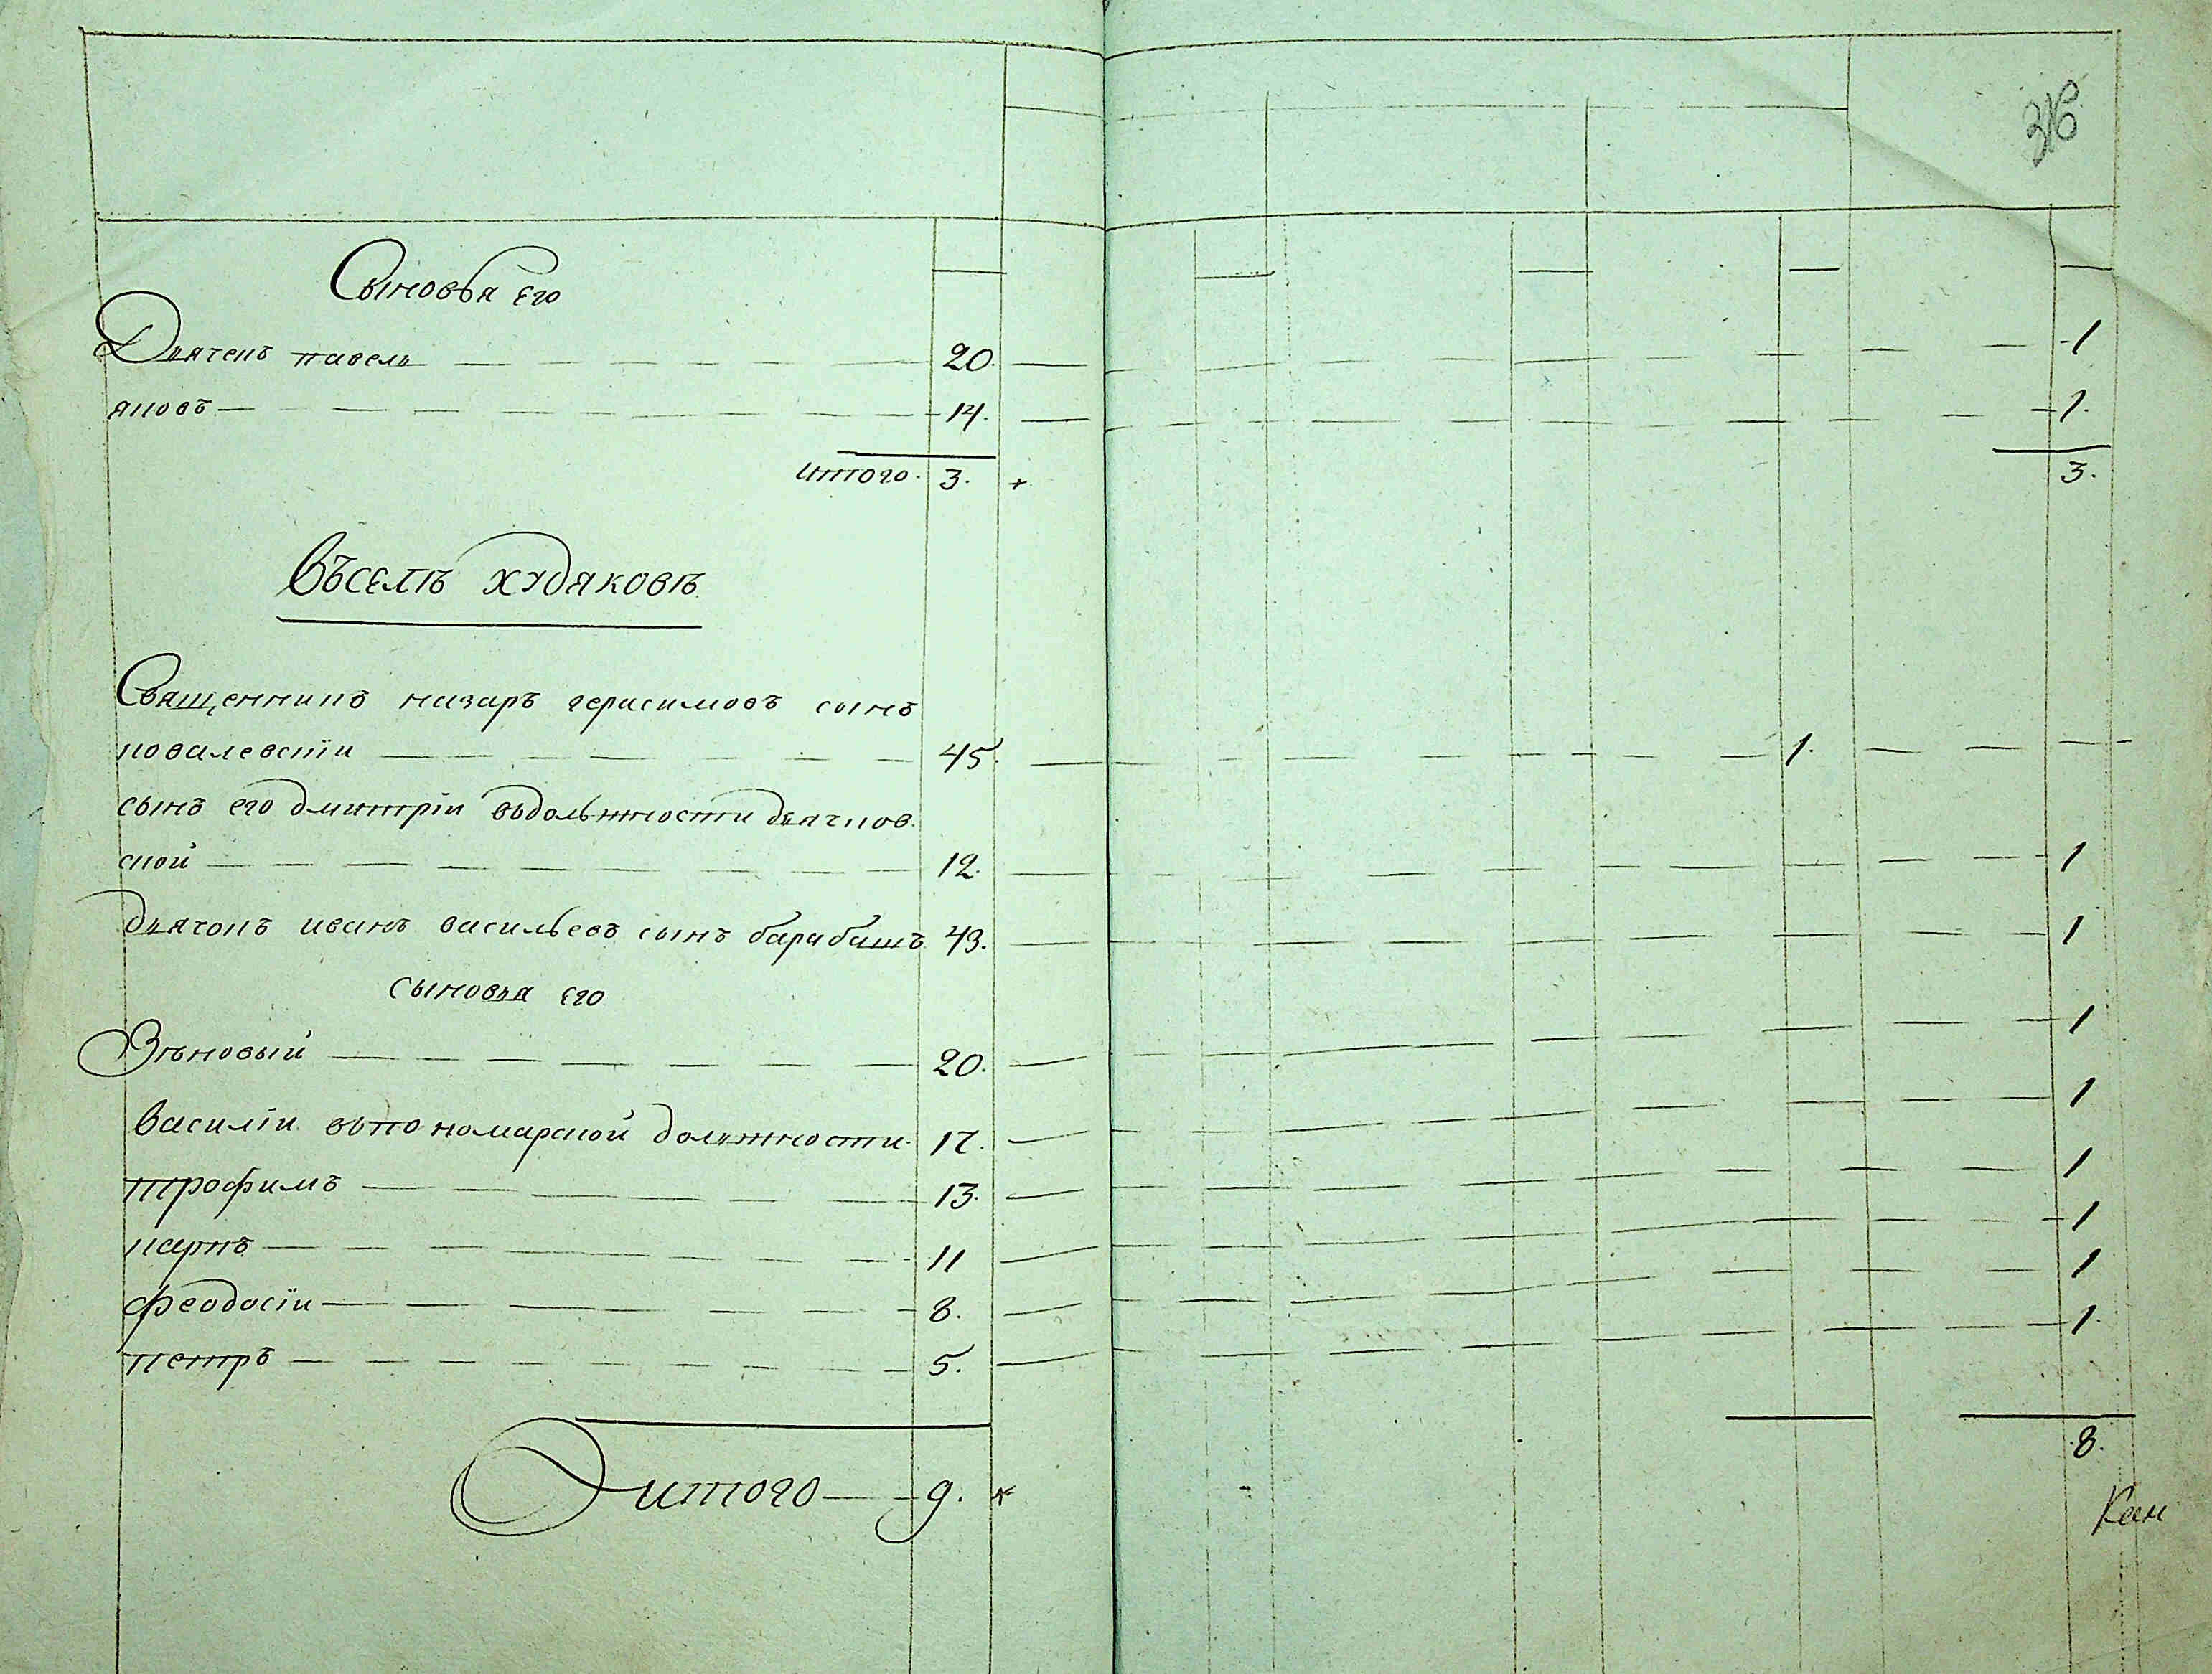 Сыновья его
Дьячекъ павелъ 20. 1
яковъ 14. 1.
итого. 3. 3.
Въселѣ худяковѣ
Священникъ назаръ герасимовъ сынъ
ковалевскїи 45. 1.
сынъ его дмитрїи въдолжности дьячков
ской 12. 1
дьячокъ иванъ васильевъ сынъ барабашъ 43. 1
сыновья его
Зѣновый 20. 1
василїи въпономарской должности. 17. 1
трофимъ 13. 1
карпъ 11 1
феодосїи 8. 1
петръ 5. 1.
итого 9. 8.
Кан